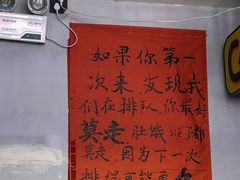 如果你第一
次来,发现我
们在排队,你最好
莫走,肚饿
莫走,因为下一次
排得可能更